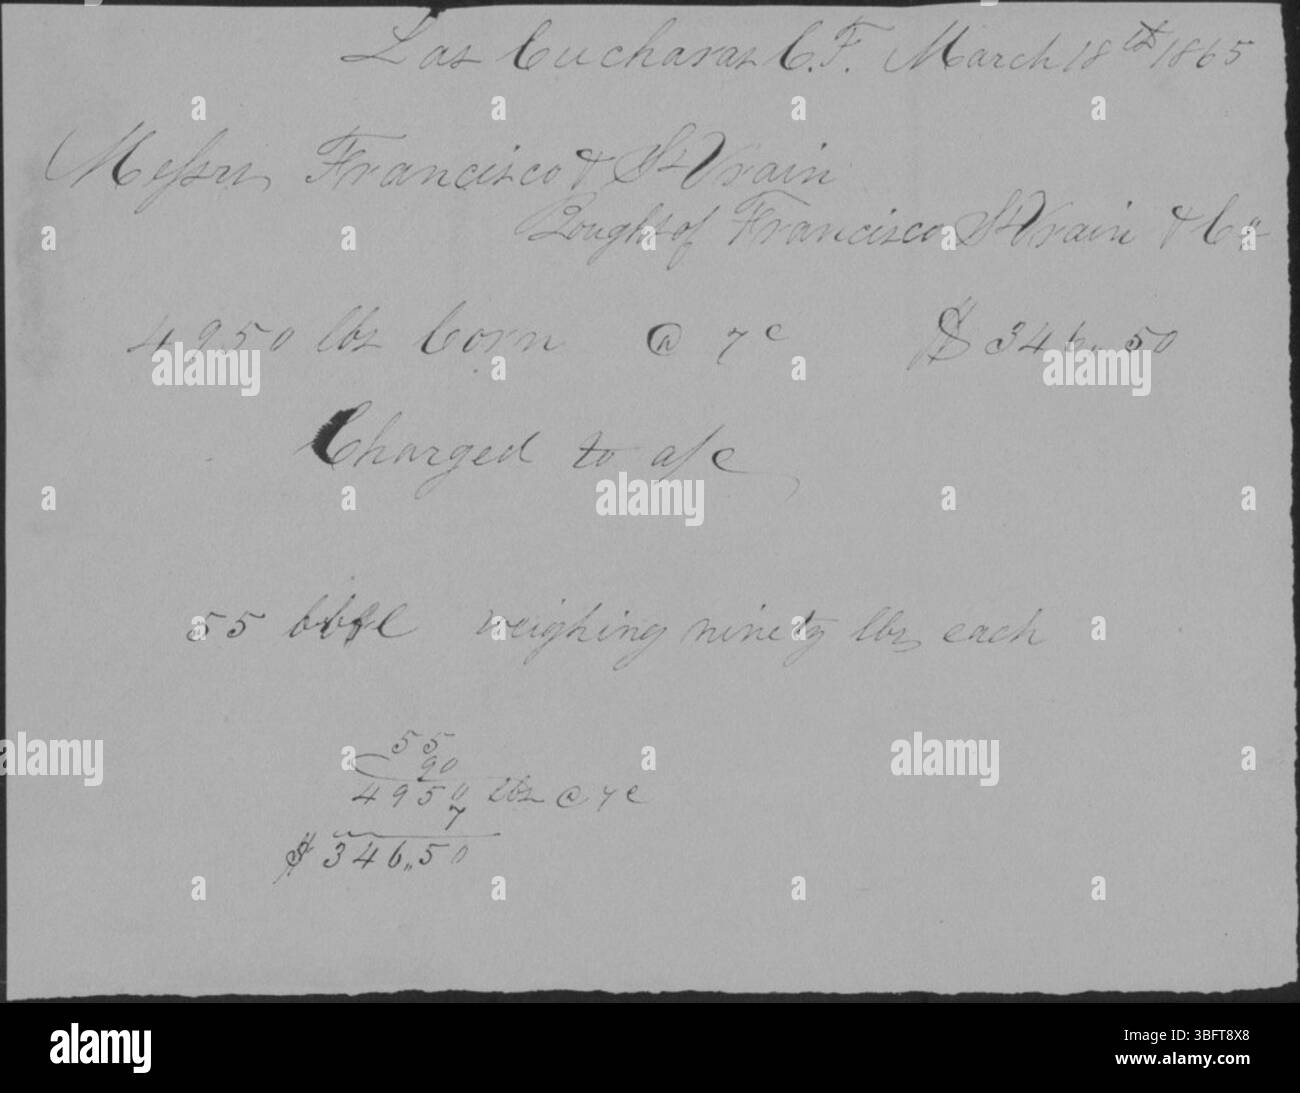 Las Cucharas C.F. March 18th 1865
Messrs Francisco & St Vrain
Bought of Francisco St Vrain & Co
4950 lbs Corn @ 7c $346.,50
Charged to a/c
55 weighing ninety lbs each
55
90
4950 lbs @ 7c
7
$346.,50
alamy
Image ID: 3BFT8X8
www.alamy.com